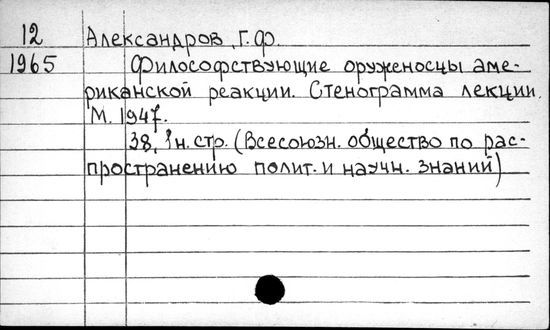 12 Александров, Г.Ф.
1965 Философствующие оруженосцы аме-
риканской реакции. Стенограмма лекции.
М. 1947.
38, 1 н. стр. (Всесоюзн. общество по рас-
пространению полит. и научн. знаний)